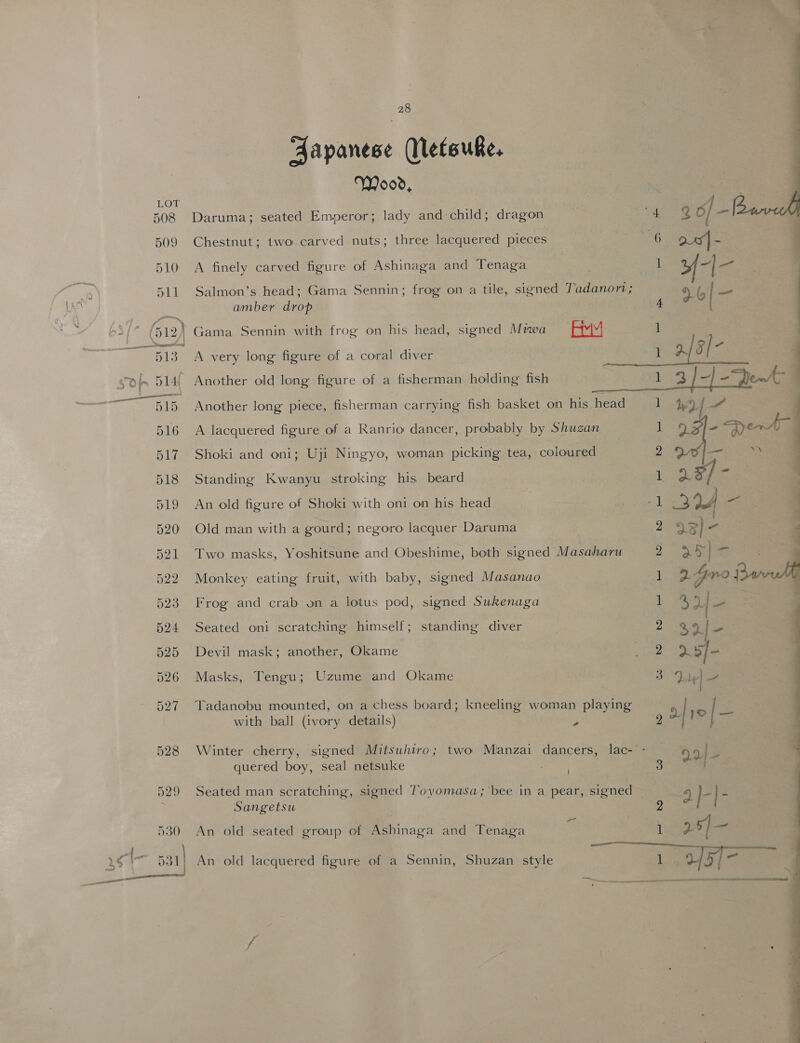 28
Japanese Netsuke.
Wood.
LOT
508 Daruma; seated Emperor; lady and child; dragon 4 26/-
509 Chestnut; two carved nuts; three lacquered pieces 6
510 A finely carved figure of Ashinaga and Tenaga 1
511 Salmon's head; Gama Sennin; frog on a tile, signed Tadanori;
amber drop 4 26/-
512 Gama Sennin with frog on his head, signed Miwa 1
513 A very long figure of a coral diver 1 2/8/-
514 Another old long figure of a fisherman holding fish 1 3/-/- Dent
515 Another long piece, fisherman carrying fish basket on his head 1
516 A lacquered figure of a Ranrio dancer, probably by Shuzan 1 Dent
517 Shoki and oni; Uji Ningyo, woman picking tea, coloured 2
518 Standing Kwanyu stroking his beard 1 28/-
519 An old figure of Shoki with oni on his head 1
520 Old man with a gourd; negoro lacquer Daruma 2 28/-
521 Two masks, Yoshitsune and Obeshime, both signed Masaharu 2
522 Monkey eating fruit, with baby, signed Masanao 1
523 Frog and crab on a lotus pod, signed Sukenaga 1 32/-
524 Seated oni scratching himself; standing diver 2 32/-
525 Devil mask; another, Okame 2 25/-
526 Masks, Tengu; Uzume and Okame 3
527 Tadanobu mounted, on a chess board; kneeling woman playing
with ball (ivory details) 2 2/10/-
528 Winter cherry, signed Mitsuhiro; two Manzai dancers, lac-
quered boy, seal netsuke 3 22/-
529 Seated man scratching, signed Toyomasa; bee in a pear, signed
Sangetsu 2 2/-/-
530 An old seated group of Ashinaga and Tenaga 1 25/-
531 An old lacquered figure of a Sennin, Shuzan style 1 2/5/-